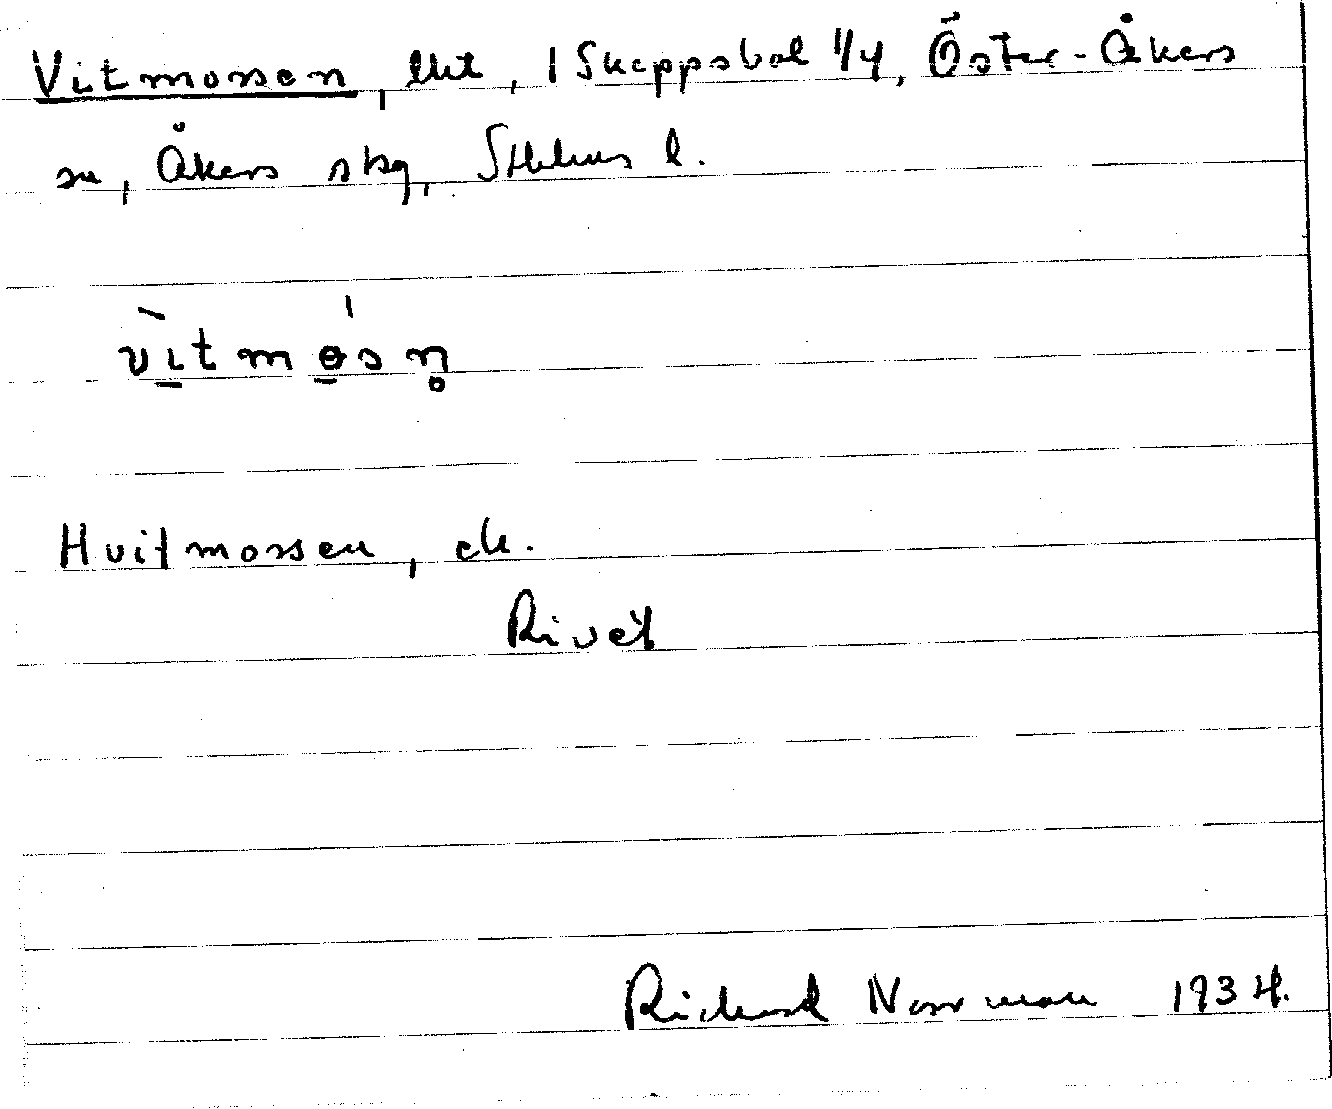 Vitmossen, lht, 1 Skeppsbol 1/4, Öster-Åkers
sn, Åkers skg, Sthlms l.
vìtmǿsn̥
Hvitmossen, ek.
Rivet
Richard Norrman 1934.